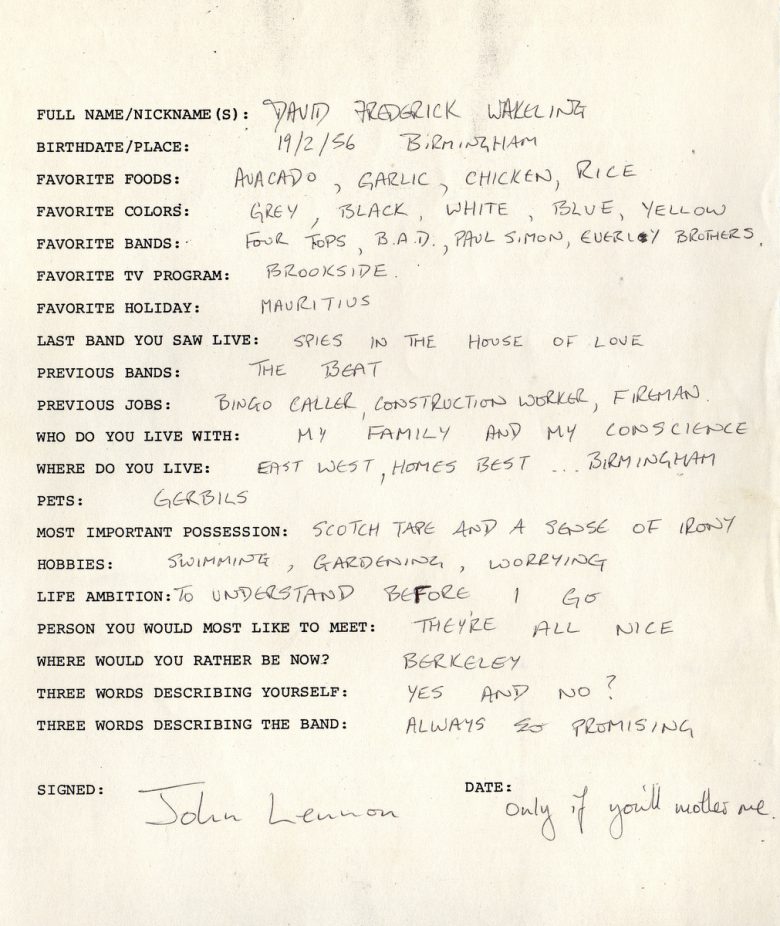 FULL NAME/NICKNAME(S): DAVID FREDERICK WAKELING
BIRTHDATE/PLACE: 19/2/56 BIRMINGHAM
FAVORITE FOODS: AVACADO, GARLIC, CHICKEN, RICE
FAVORITE COLORS: GREY, BLACK, WHITE, BLUE, YELLOW
FAVORITE BANDS: FOUR TOPS, B.A.D., PAUL SIMON, EVERLEY BROTHERS.
FAVORITE TV PROGRAM: BROOKSIDE.
FAVORITE HOLIDAY: MAURITIUS
LAST BAND YOU SAW LIVE: SPIES IN THE HOUSE OF LOVE
PREVIOUS BANDS: THE BEAT
PREVIOUS JOBS: BINGO CALLER, CONSTRUCTION WORKER, FIREMAN.
WHO DO YOU LIVE WITH: MY FAMILY AND MY CONSCIENCE
WHERE DO YOU LIVE: EAST WEST, HOMES BEST ... BIRMINGHAM
PETS: GERBILS
MOST IMPORTANT POSSESSION: SCOTCH TAPE AND A SENSE OF IRONY
HOBBIES: SWIMMING, GARDENING, WORRYING
LIFE AMBITION: TO UNDERSTAND BEFORE I GO
PERSON YOU WOULD MOST LIKE TO MEET: THEY'RE ALL NICE
WHERE WOULD YOU RATHER BE NOW? BERKELEY
THREE WORDS DESCRIBING YOURSELF: YES AND NO?
THREE WORDS DESCRIBING THE BAND: ALWAYS SO PROMISING
SIGNED: John Lennon DATE: Only if you'll mother me.